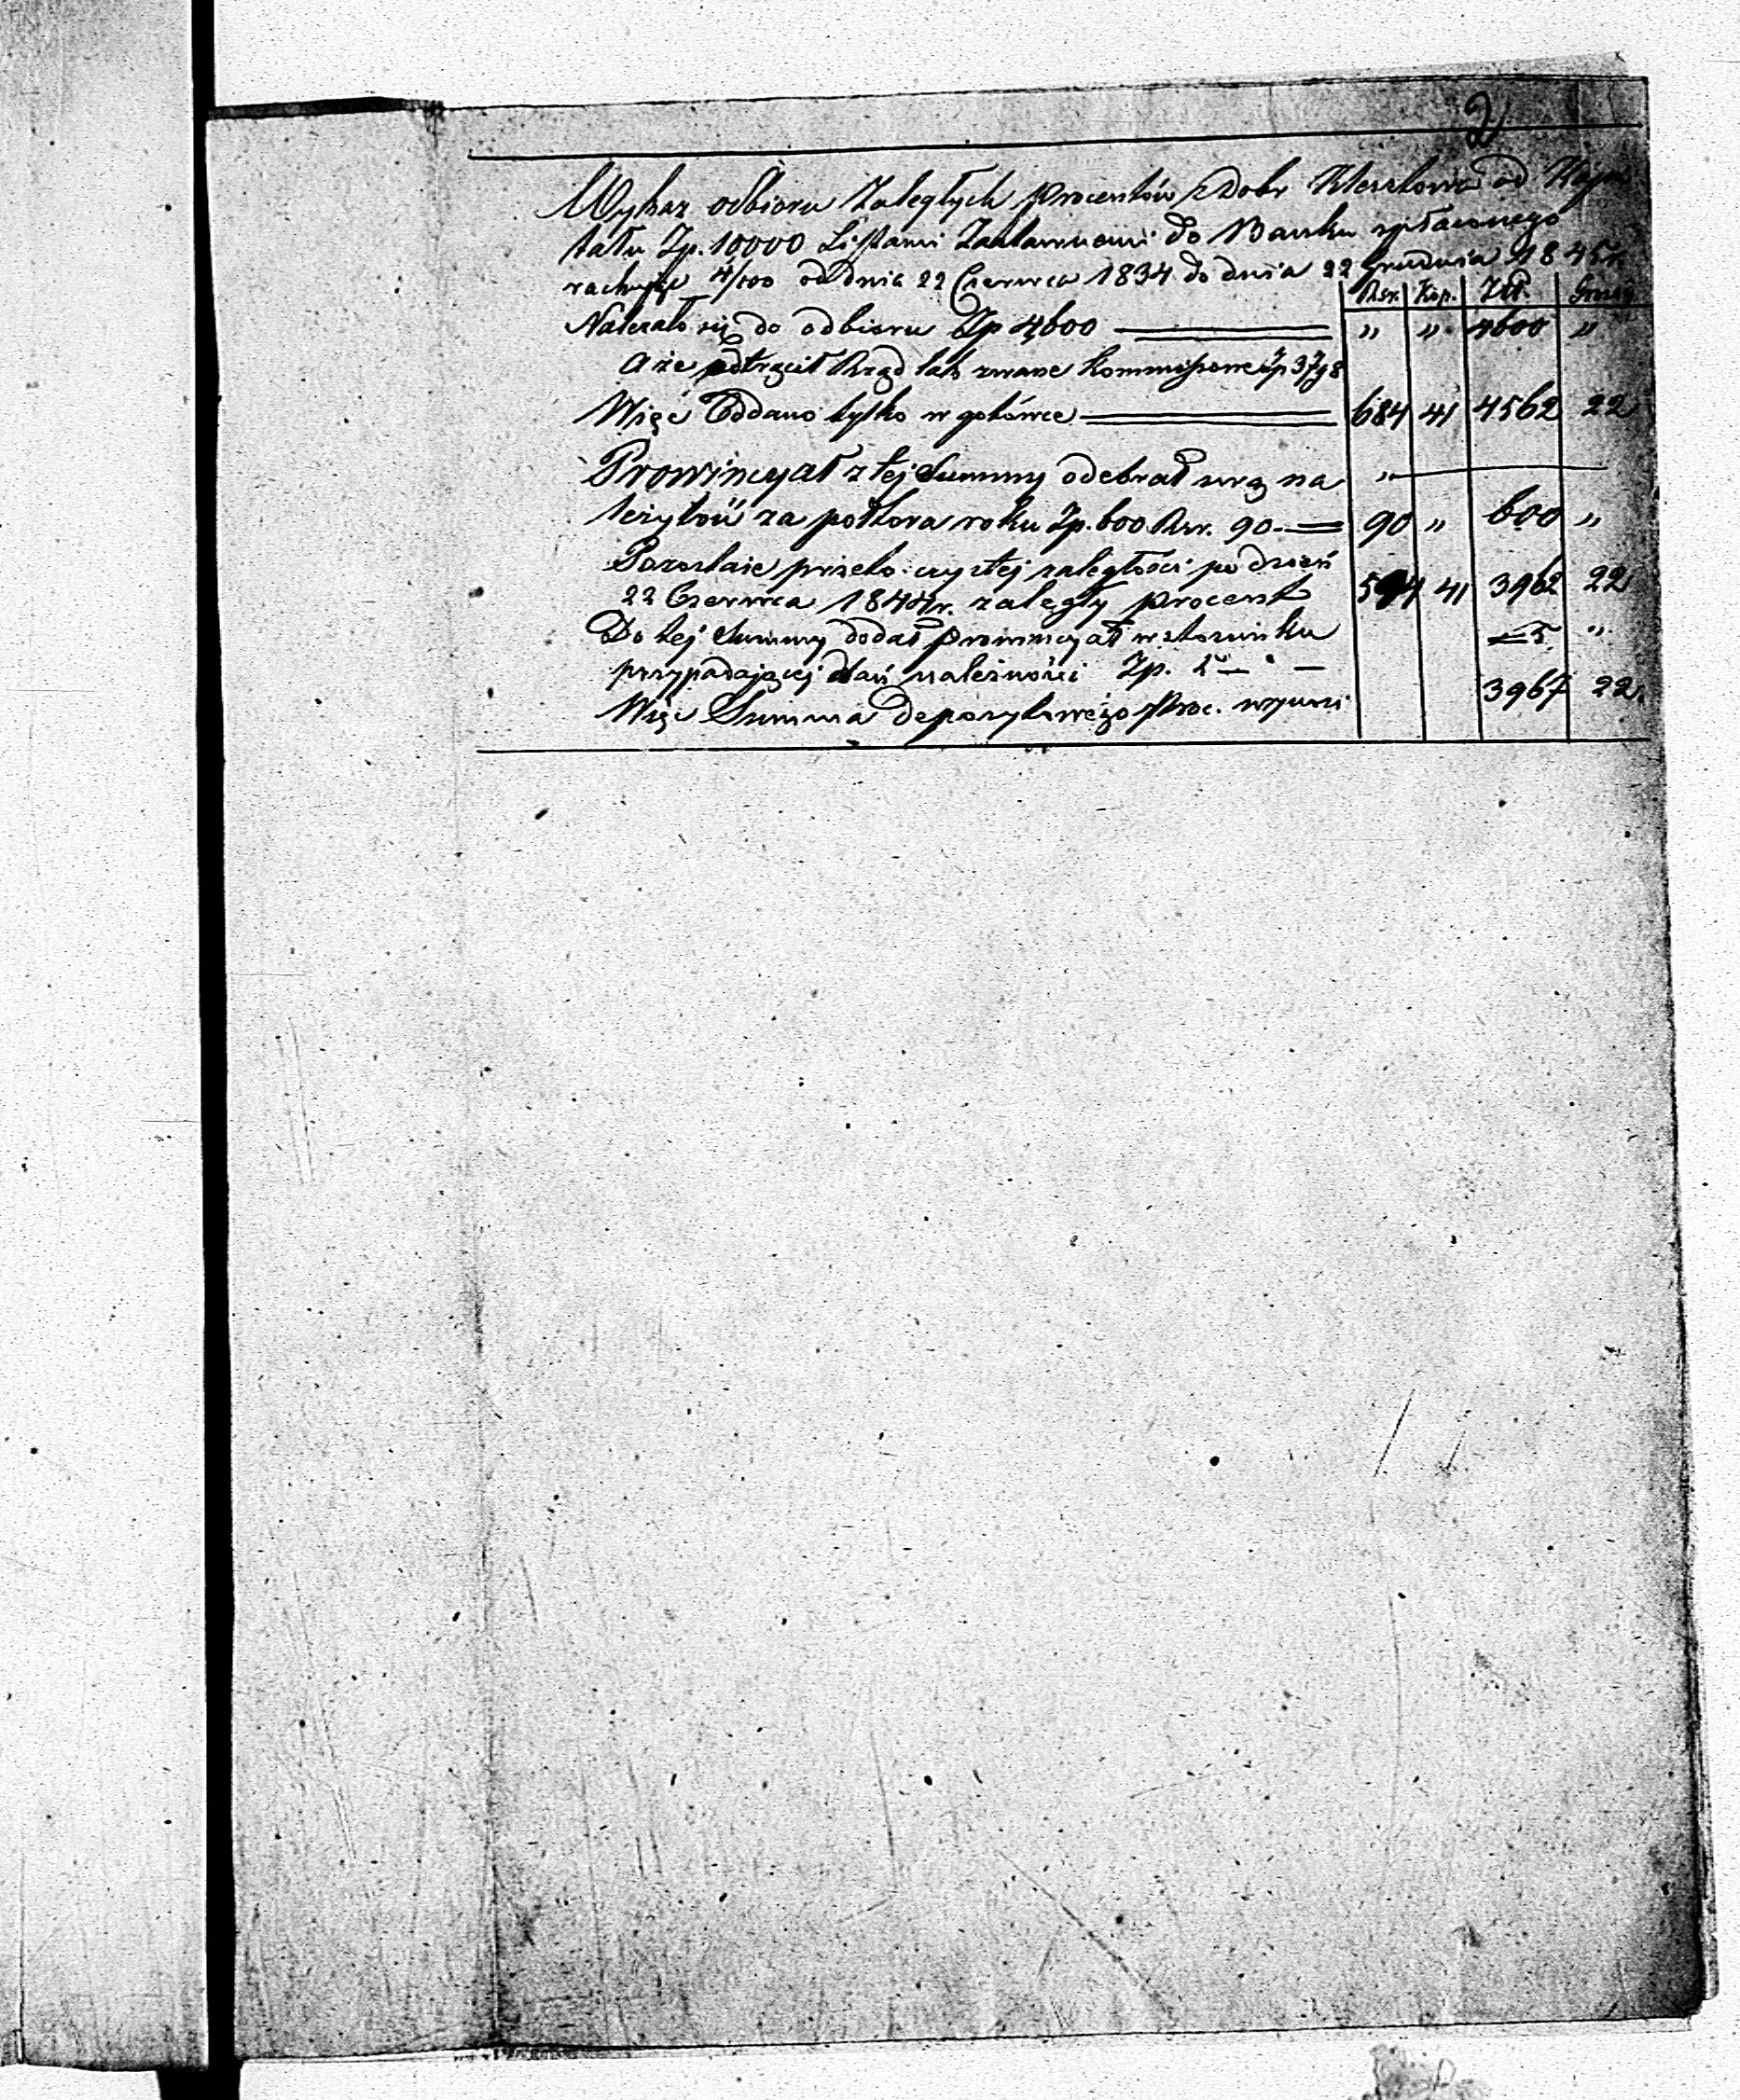 2
Wykaz odbioru Zaległych procentów z Dobr Kleszkowa od Kapi
tału Zp. 10000 Listami Zastawnemi do Banku spłaconego
rachując 4/100 od dnia 22 Czerwca 1834 do dnia 22 Grudnia 1845 r.
Rsr. Kop. Złt. Groszy
Należało się do odbioru Zp 4600 " " 4600 "
a że potrącił Rząd tak zwane Kommissowe Zp 37 g 8
Więc Oddano tylko w gotówce 684 41 4562 22
Prowincyał z tej Summy odebrał swą na "
leżytość za półtora roku Zp. 600 Rsr. 90 90 " 600 "
Pozostaie przeto czystej zaległości po dzień
22 Czerwca 1844 r. zaległy procent 594 41 3962 22
Do tej Summy dodał prowincyał w stosunku 5 "
przypadającej dlań należności Zp.
Więc Summa depozytowego Proc. wynosi 3967 22.